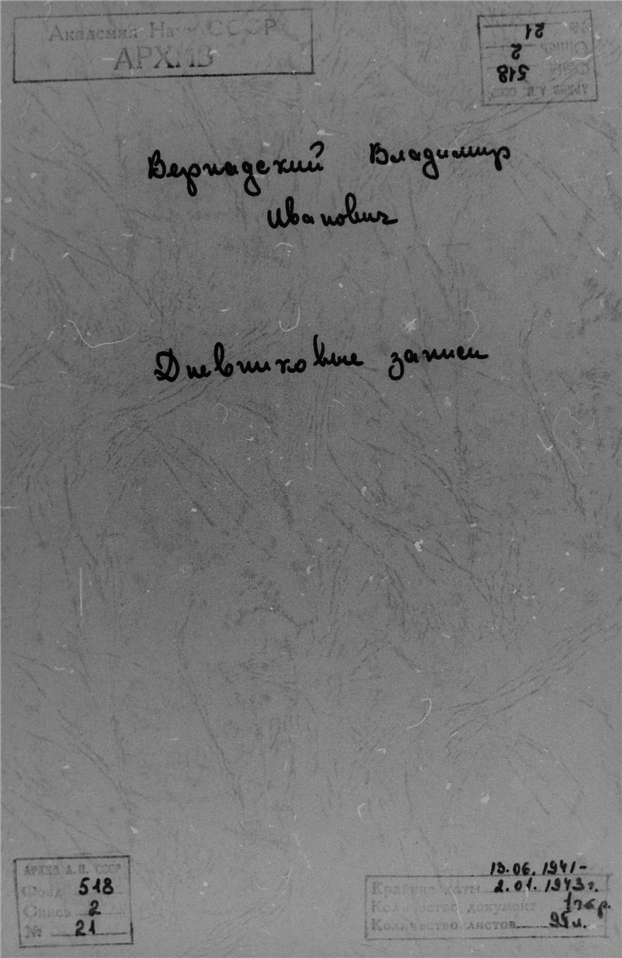 Академия На СССР
АРХИВ
№ 21
Опись 2
Фонд 518
Архив А.Н. СССР
Вернадский Владимир
Иванович
Дневниковые записи
АРХИВ А.Н. СССР
Фонд 518
Опись 2
№ 21
13.06.1941-
Крайние даты 2.01.1943г.
Количество документ
Количество листов